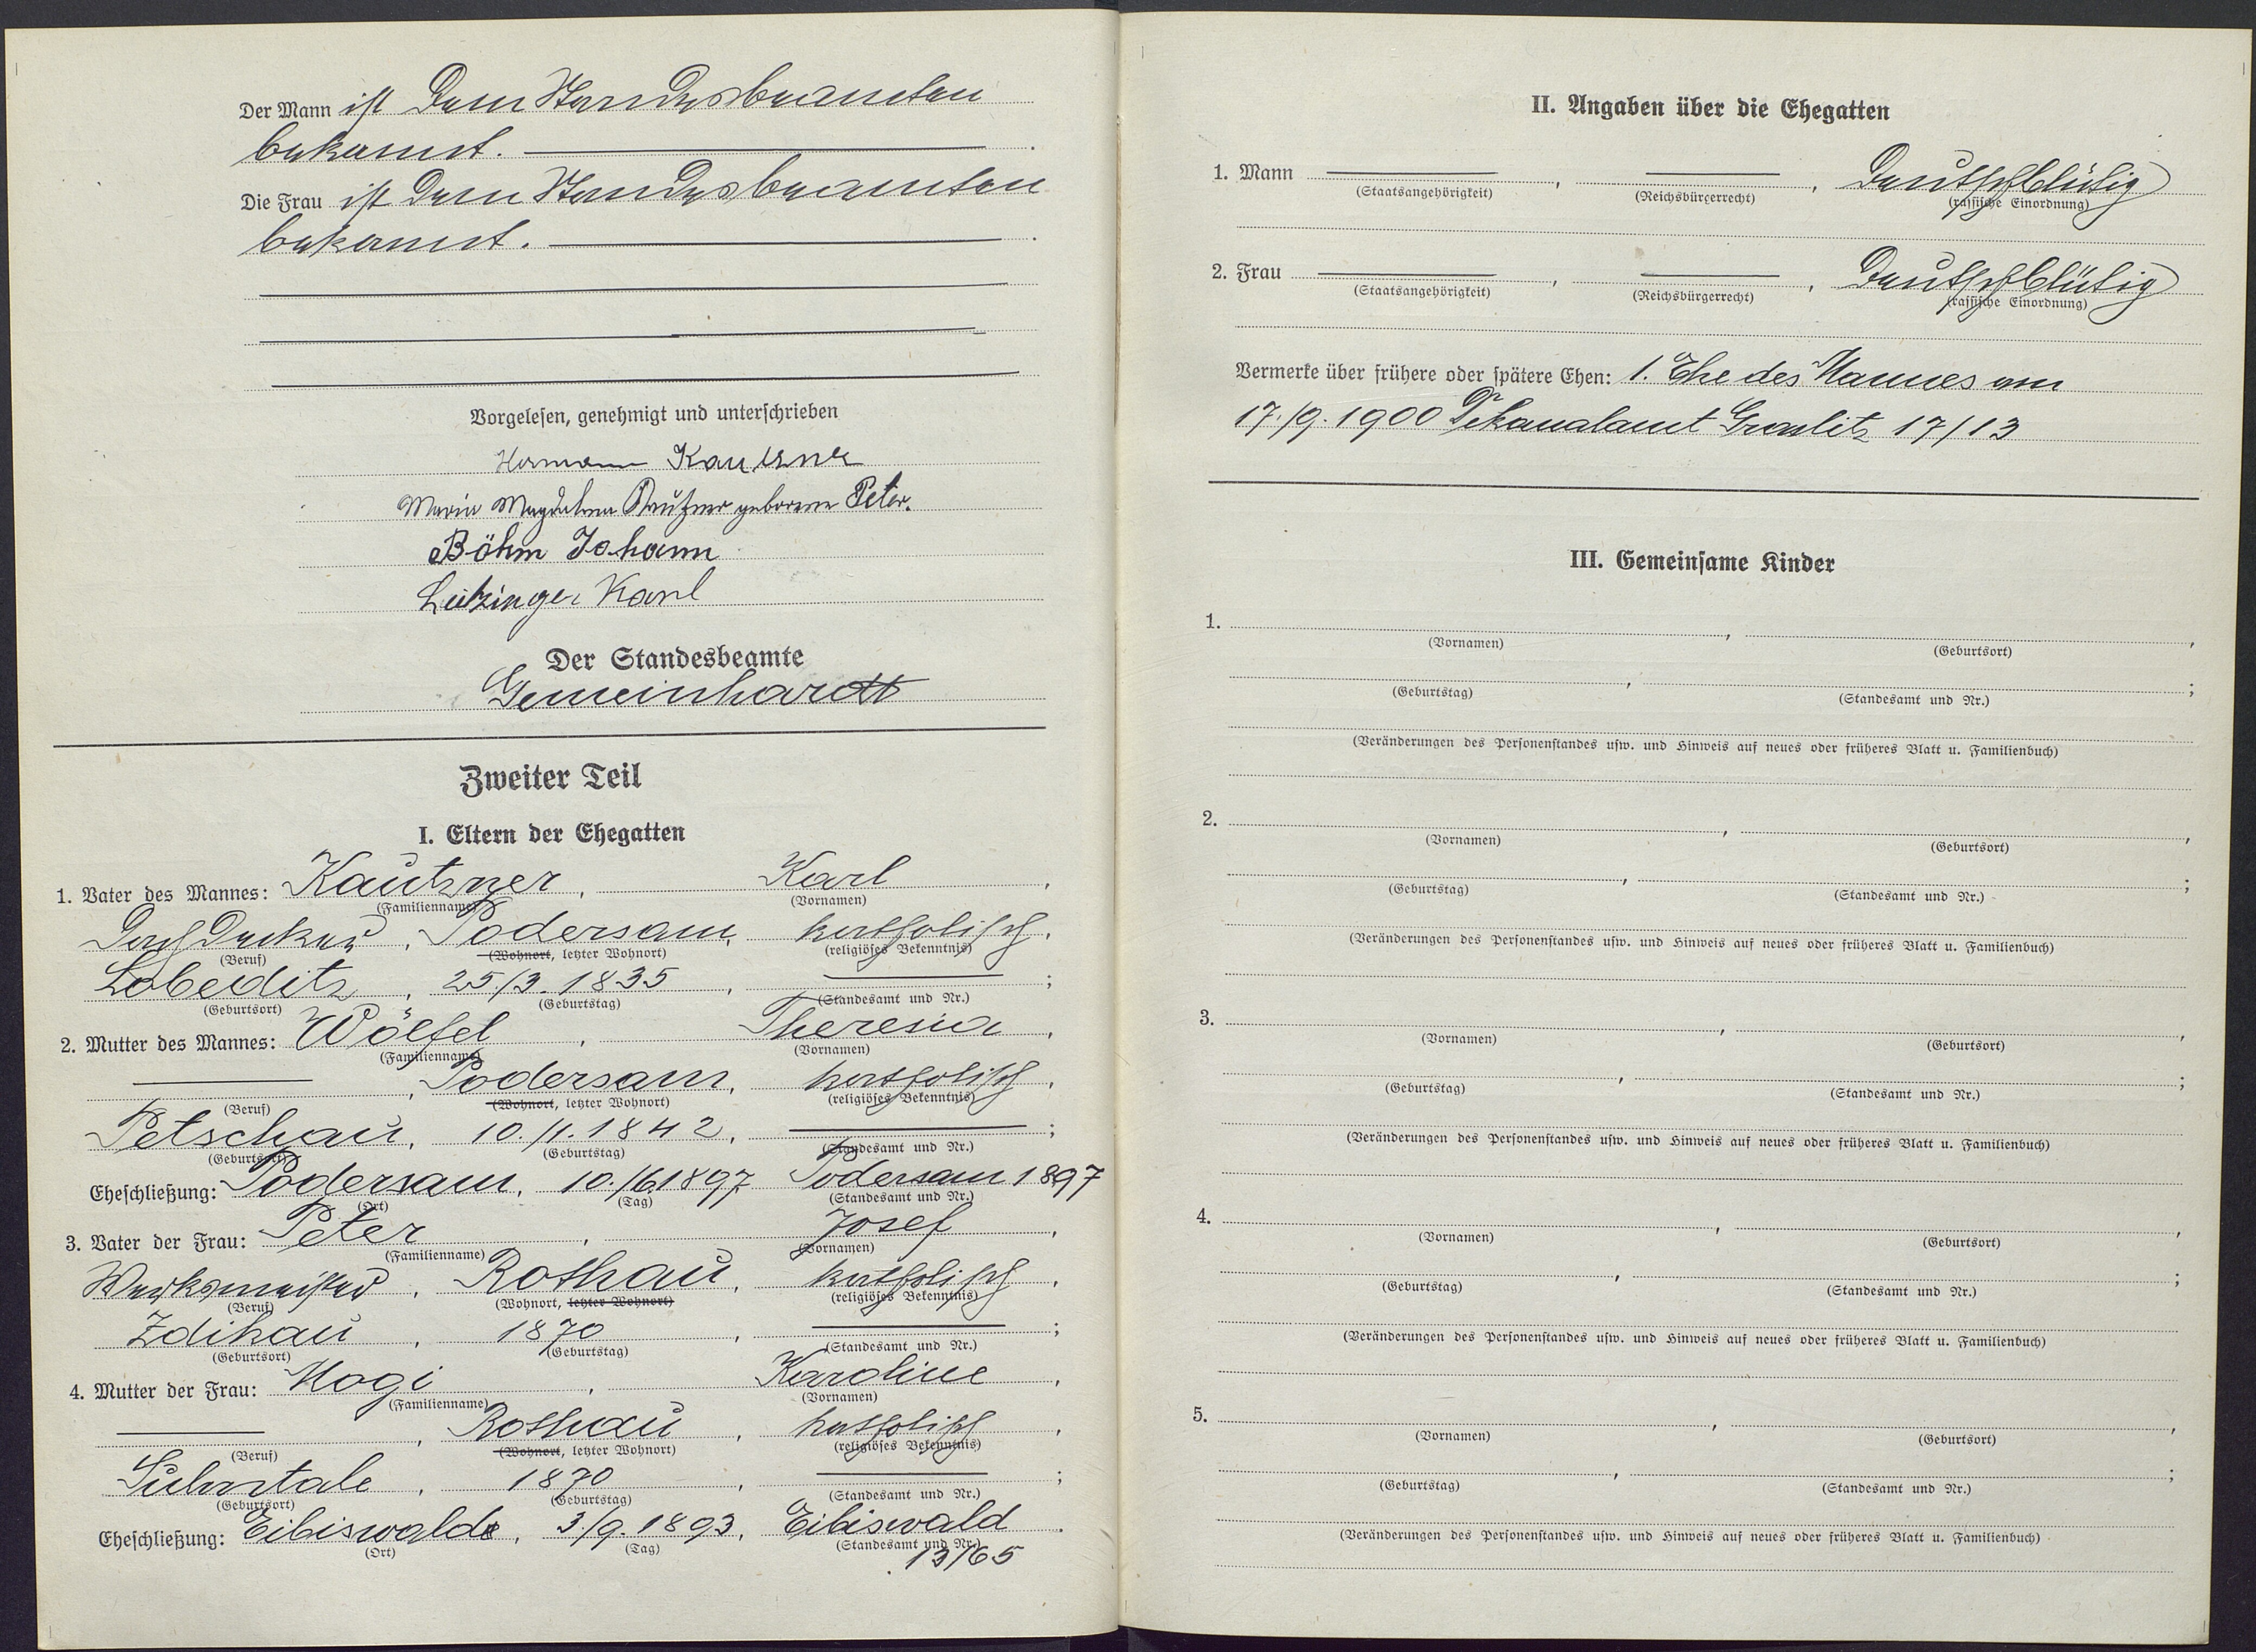 Der Mann ist dem Standesbeamten
bekannt.
Die Frau ist dem Standesbeamten
bekannt.
Vorgelesen, genehmigt und unterschrieben
Hermann Kautzner
Maria Magdalena Kautzner geborene Peter.
Böhm Johann
Leitzinger Karl
Der Standesbeamte
Gemeinhardt
Zweiter Teil
I. Eltern der Ehegatten
1. Vater des Mannes: Kautzner, Karl,
(Familienname) (Vornamen)
Dachdecker, Podersam, katholisch,
(Beruf) (Wohnort, letzter Wohnort) (religiöses Bekenntnis)
Lobeditz, 25./3. 1835, ;
(Geburtsort) (Geburtstag) (Standesamt und Nr.)
2. Mutter des Mannes: Wölfel, Theresia,
(Familienname) (Vornamen)
, Podersam, katholisch,
(Beruf) (Wohnort, letzter Wohnort) (religiöses Bekenntnis)
Petschau, 10./1. 1842, ;
(Geburtsort) (Geburtstag) (Standesamt und Nr.)
Eheschließung: Podersam, 10./6. 1897 Podersam 1897
(Ort) (Tag) (Standesamt und Nr.)
3. Vater der Frau: Peter, Josef,
(Familienname) (Vornamen)
Werksmeister, Rothau, katholisch,
(Beruf) (Wohnort, letzter Wohnort) (religiöses Bekenntnis)
Zdikau, 1870, ;
(Geburtsort) (Geburtstag) (Standesamt und Nr.)
4. Mutter der Frau: Karoline,
(Familienname) (Vornamen)
, Rothau, katholisch,
(Beruf) (Wohnort, letzter Wohnort) (religiöses Bekenntnis)
, 1870, ;
(Geburtsort) (Geburtstag) (Standesamt und Nr.)
Eheschließung: Eibiswald, 3./9. 1893, Eibiswald.
(Ort) (Tag) (Standesamt und Nr.)
13/65
II. Angaben über die Ehegatten
1. Mann , , Deutschblütig
(Staatsangehörigkeit) (Reichsbürgerrecht) (rassische Einordnung)
2. Frau , , Deutschblütig
(Staatsangehörigkeit) (Reichsbürgerrecht) (rassische Einordnung)
Vermerke über frühere oder spätere Ehen: 1. Ehe des Mannes am
17./9. 1900 Dekanalamt Graslitz 17/13
III. Gemeinsame Kinder
1. , ,
(Vornamen) (Geburtsort)
, ;
(Geburtstag) (Standesamt und Nr.)
(Veränderungen des Personenstandes usw. und Hinweis auf neues oder früheres Blatt u. Familienbuch)
2. , ,
(Vornamen) (Geburtsort)
, ;
(Geburtstag) (Standesamt und Nr.)
(Veränderungen des Personenstandes usw. und Hinweis auf neues oder früheres Blatt u. Familienbuch)
3. , ,
(Vornamen) (Geburtsort)
, ;
(Geburtstag) (Standesamt und Nr.)
(Veränderungen des Personenstandes usw. und Hinweis auf neues oder früheres Blatt u. Familienbuch)
4. , ,
(Vornamen) (Geburtsort)
, ;
(Geburtstag) (Standesamt und Nr.)
(Veränderungen des Personenstandes usw. und Hinweis auf neues oder früheres Blatt u. Familienbuch)
5. , ,
(Vornamen) (Geburtsort)
, ;
(Geburtstag) (Standesamt und Nr.)
(Veränderungen des Personenstandes usw. und Hinweis auf neues oder früheres Blatt u. Familienbuch)